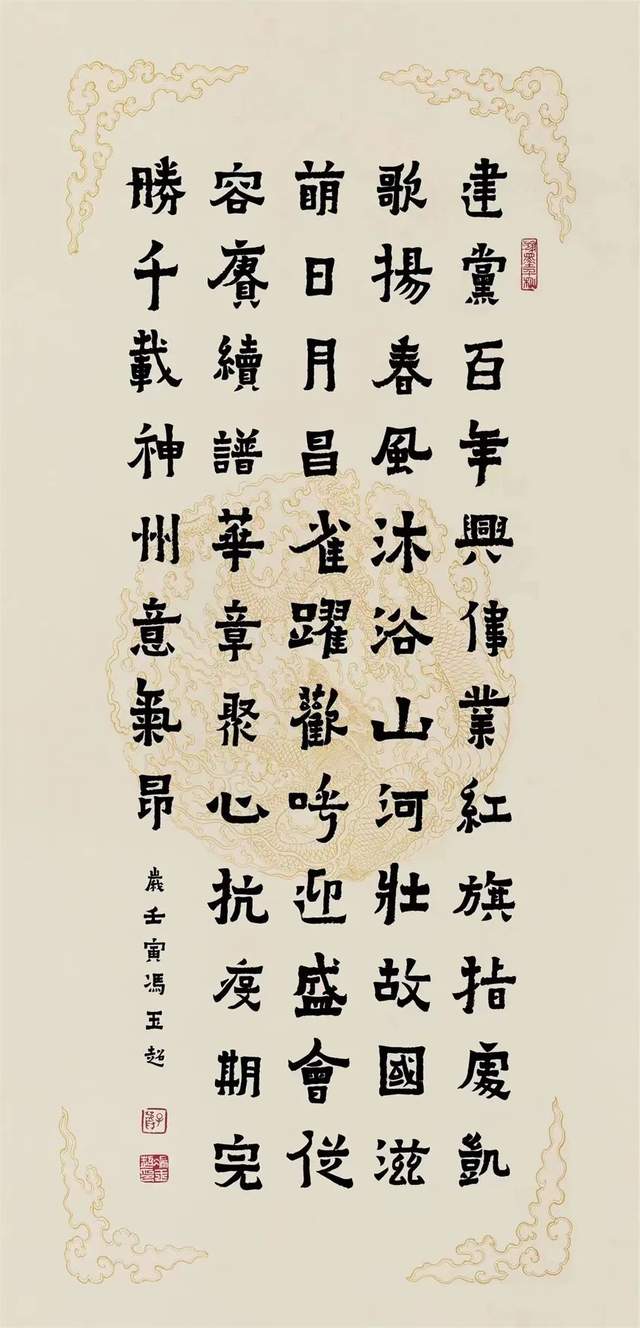 建黨百年興偉業紅旗指處凱
歌揚春風沐浴山河壯故國滋
萌日月昌雀躍歡呼迎盛會從
容賡續譜華章聚心抗疫期完
勝千載神州意氣昂
歲壬寅馮玉超